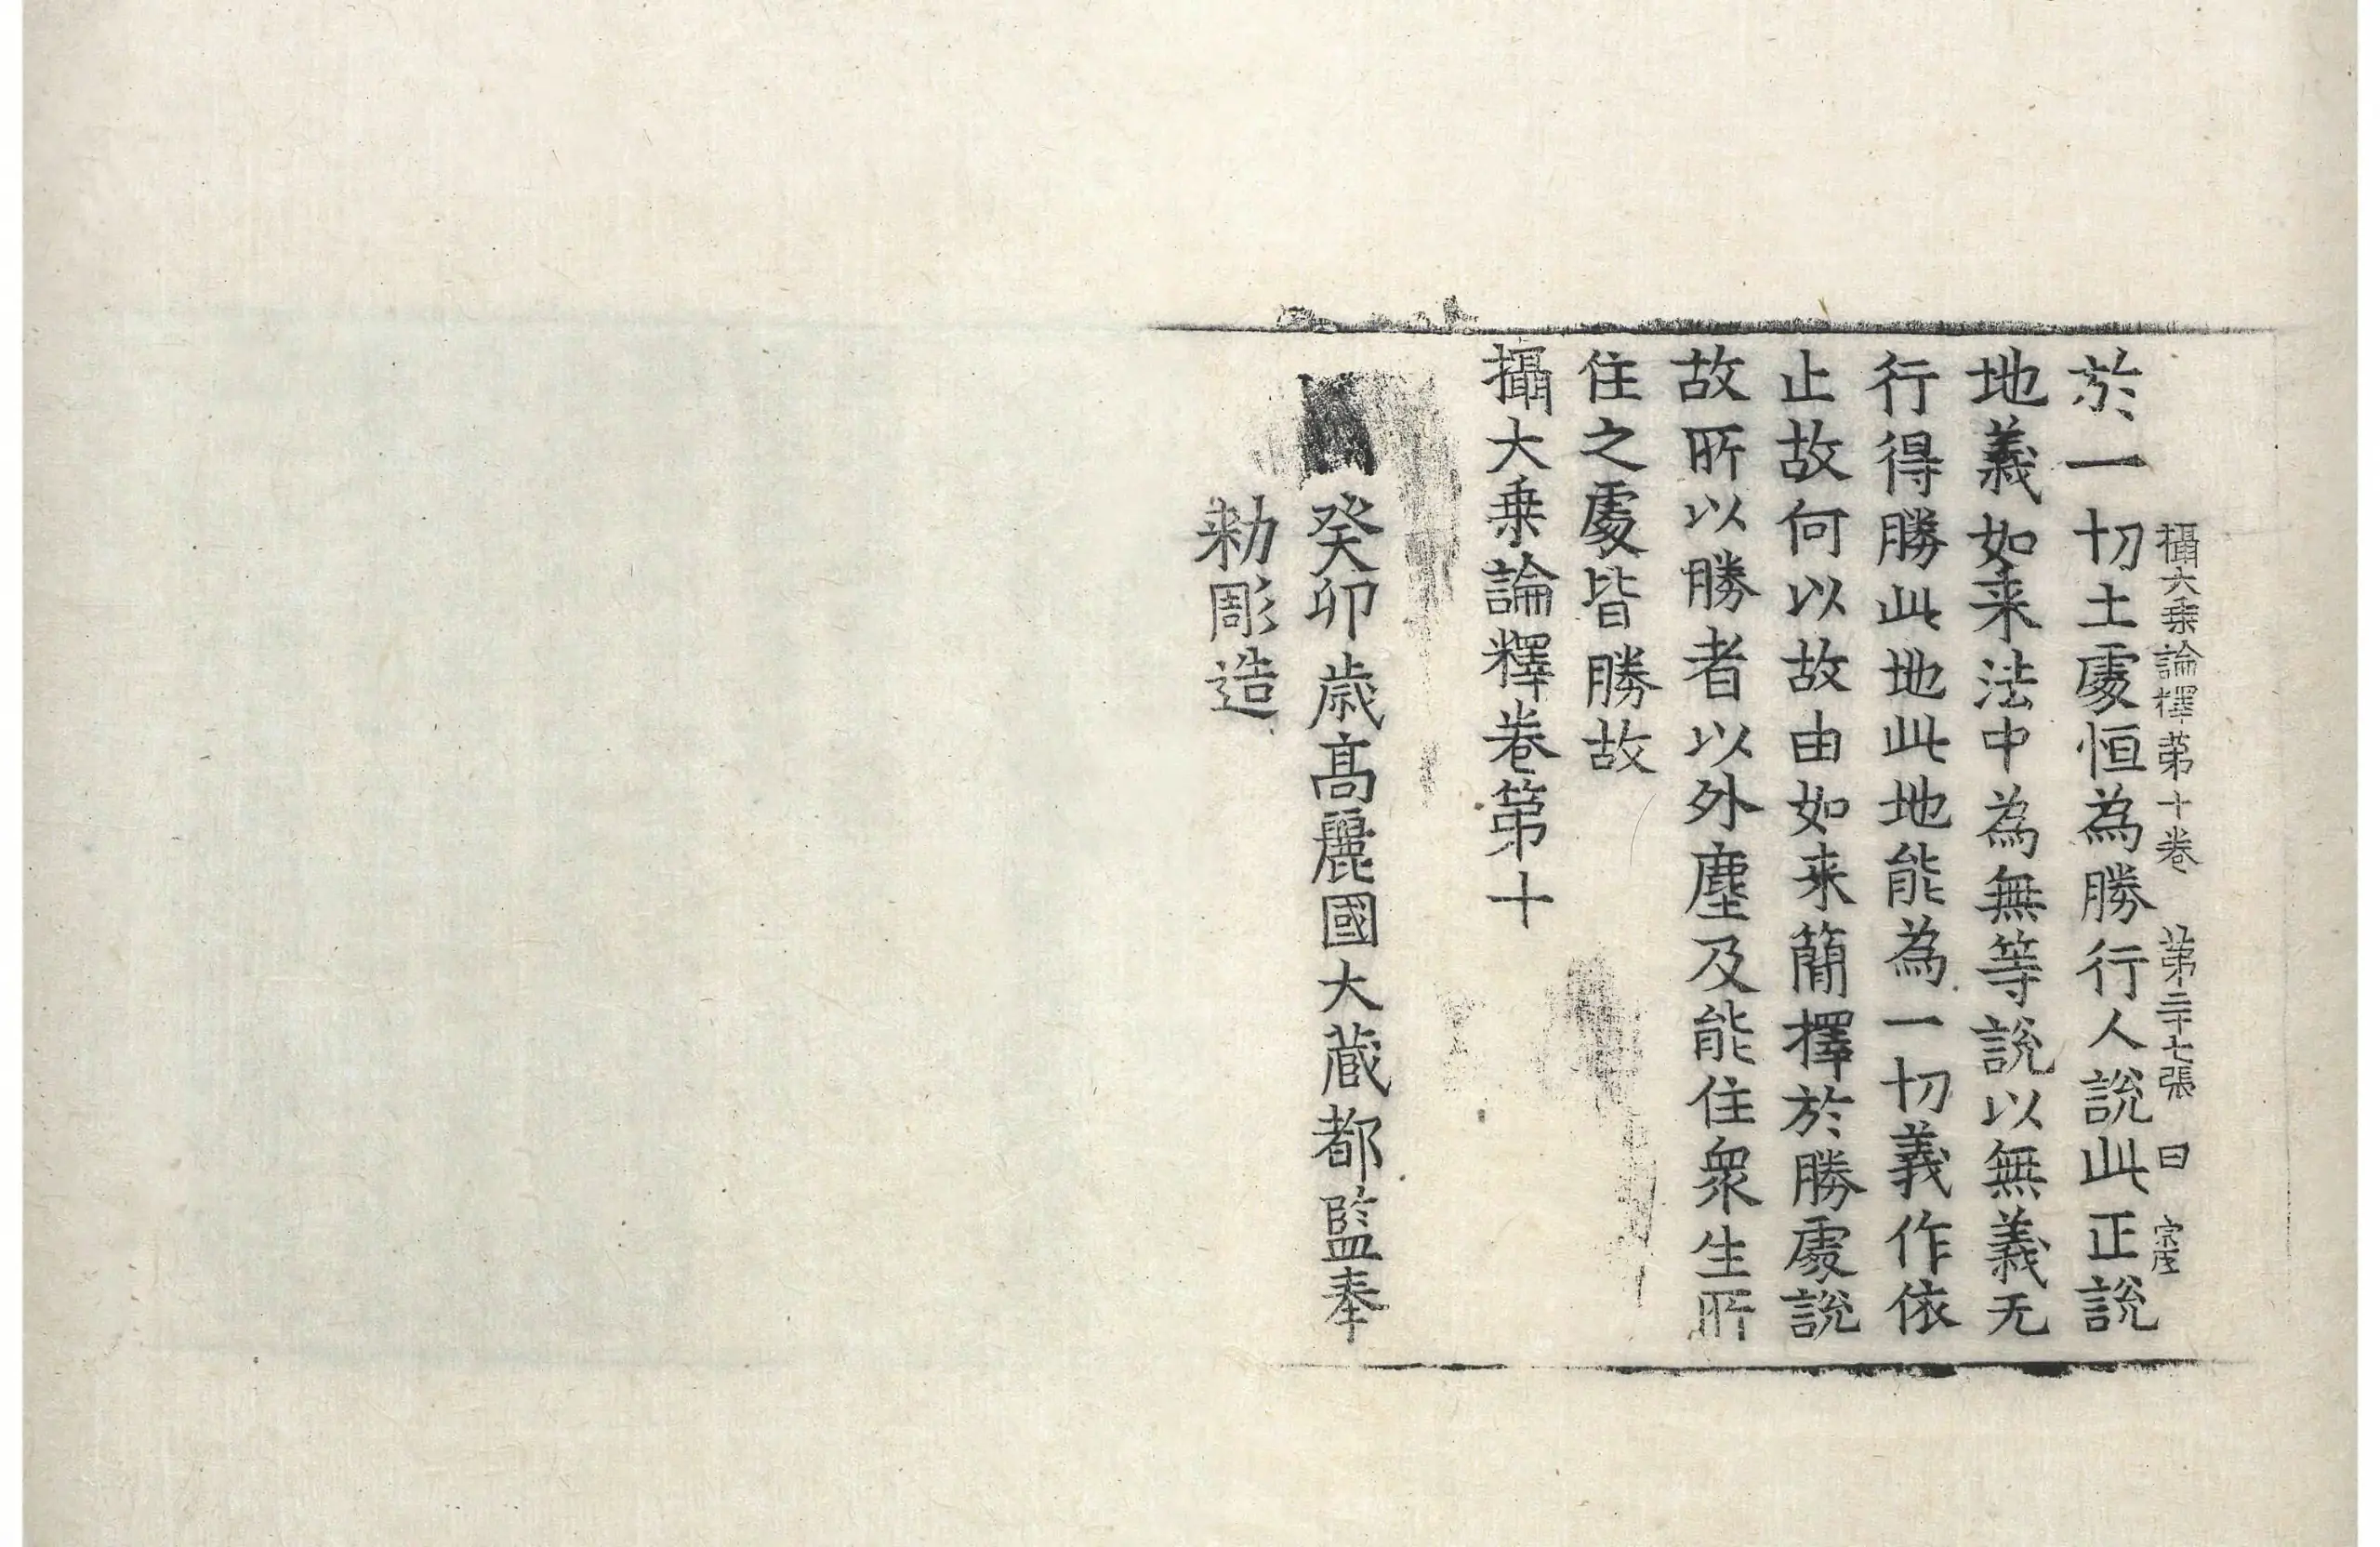 攝大乗論釋苐十卷 苐二十七張 曰 宗茂
於一切土處恒為勝行人說此正說
地義如来法中為無等說以無義无
行得勝此地此地能為一切義作依
止故何以故由如来簡擇於勝處說
故所以勝者以外塵及能住衆生所
住之處皆勝故
攝大乗論釋卷第十
癸卯歳髙麗國大蔵都監奉
勑彫造